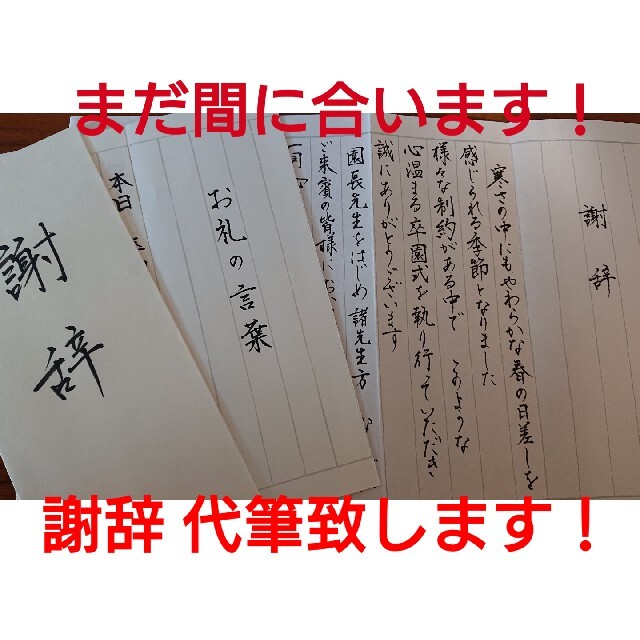 まだ間に合います！
謝辞
寒さの中にもやわらかな春の日差しを
感じられる季節となりました
様々な制約がある中で このような
心温まる卒園式を執り行っていただき
誠にありがとうございます
園長先生をはじめ 諸先生方
ご来賓の皆様に
お礼の言葉
本日
謝辞
謝辞 代筆致します！